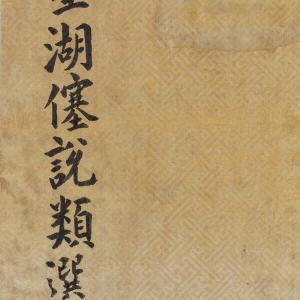 星湖僿說類選